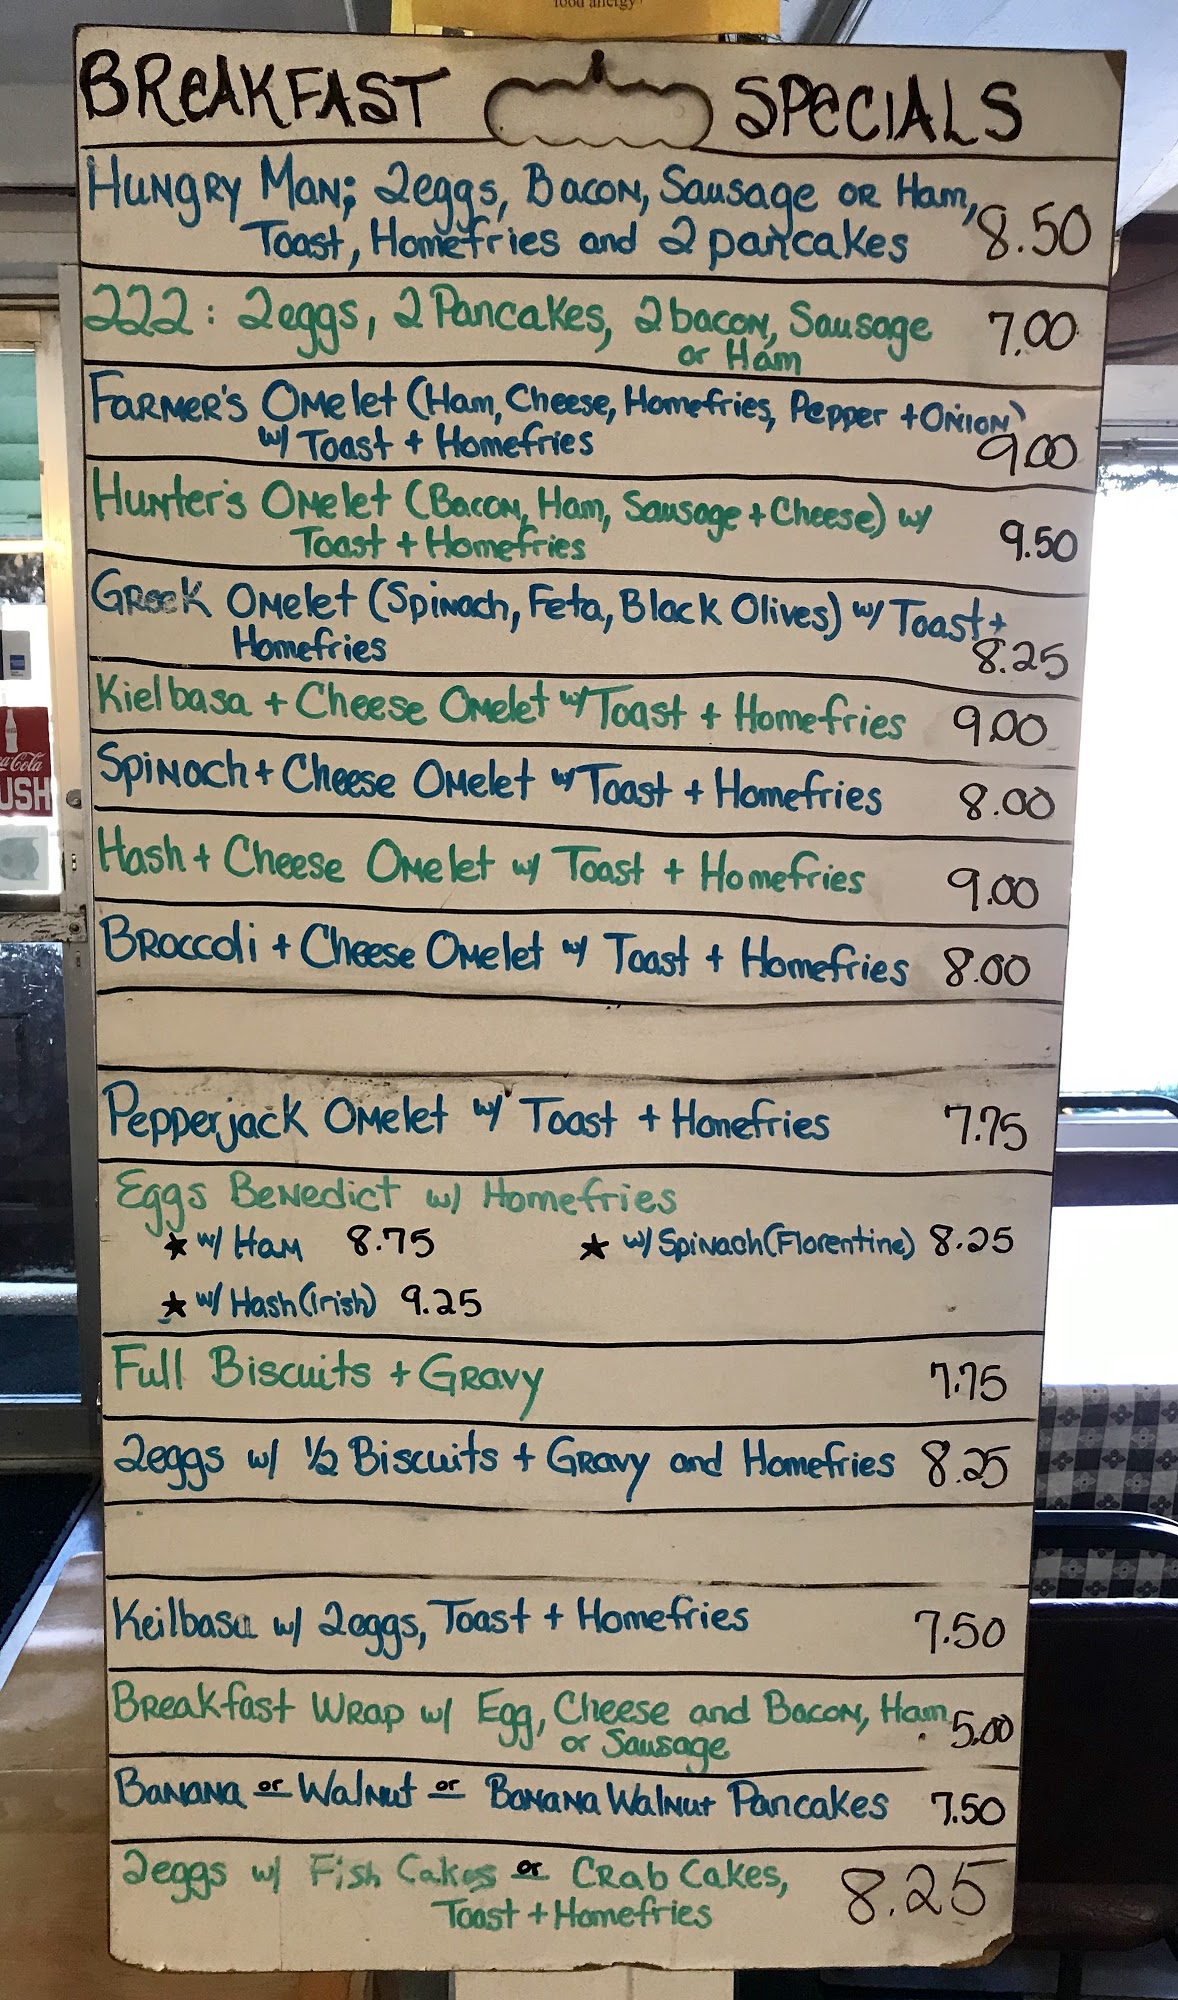 food allergy
BREAKFAST SPECIALS
Hungry Man; 2eggs, Bacon, Sausage or Ham,
Toast, Homefries and 2 pancakes 8.50
222: 2eggs, 2 Pancakes, 2 bacon, Sausage 7.00
or Ham
Farmer's Omelet (Ham, Cheese, Homefries, Pepper + Onion)
w/ Toast + Homefries 9.00
Hunter's Omelet (Bacon, Ham, Sausage + Cheese) w/
Toast + Homefries 9.50
Greek Omelet (Spinach, Feta, Black Olives) w/ Toast +
Homefries 8.25
Kielbasa + Cheese Omelet w/ Toast + Homefries 9.00
Spinach + Cheese Omelet w/ Toast + Homefries 8.00
Hash + Cheese Omelet w/ Toast + Homefries 9.00
Broccoli + Cheese Omelet w/ Toast + Homefries 8.00
Pepperjack Omelet w/ Toast + Homefries 7.75
Eggs Benedict w/ Homefries
★ w/ Ham 8.75 ★ w/ Spinach (Florentine) 8.25
★ w/ Hash (Irish) 9.25
Full Biscuits + Gravy 7.75
2eggs w/ 1/2 Biscuits + Gravy and Homefries 8.25
Keilbasa w/ 2eggs, Toast + Homefries 7.50
Breakfast Wrap w/ Egg, Cheese and Bacon, Ham 5.00
or Sausage
Banana or Walnut or Banana Walnut Pancakes 7.50
2eggs w/ Fish Cakes or Crab Cakes,
Toast + Homefries 8.25